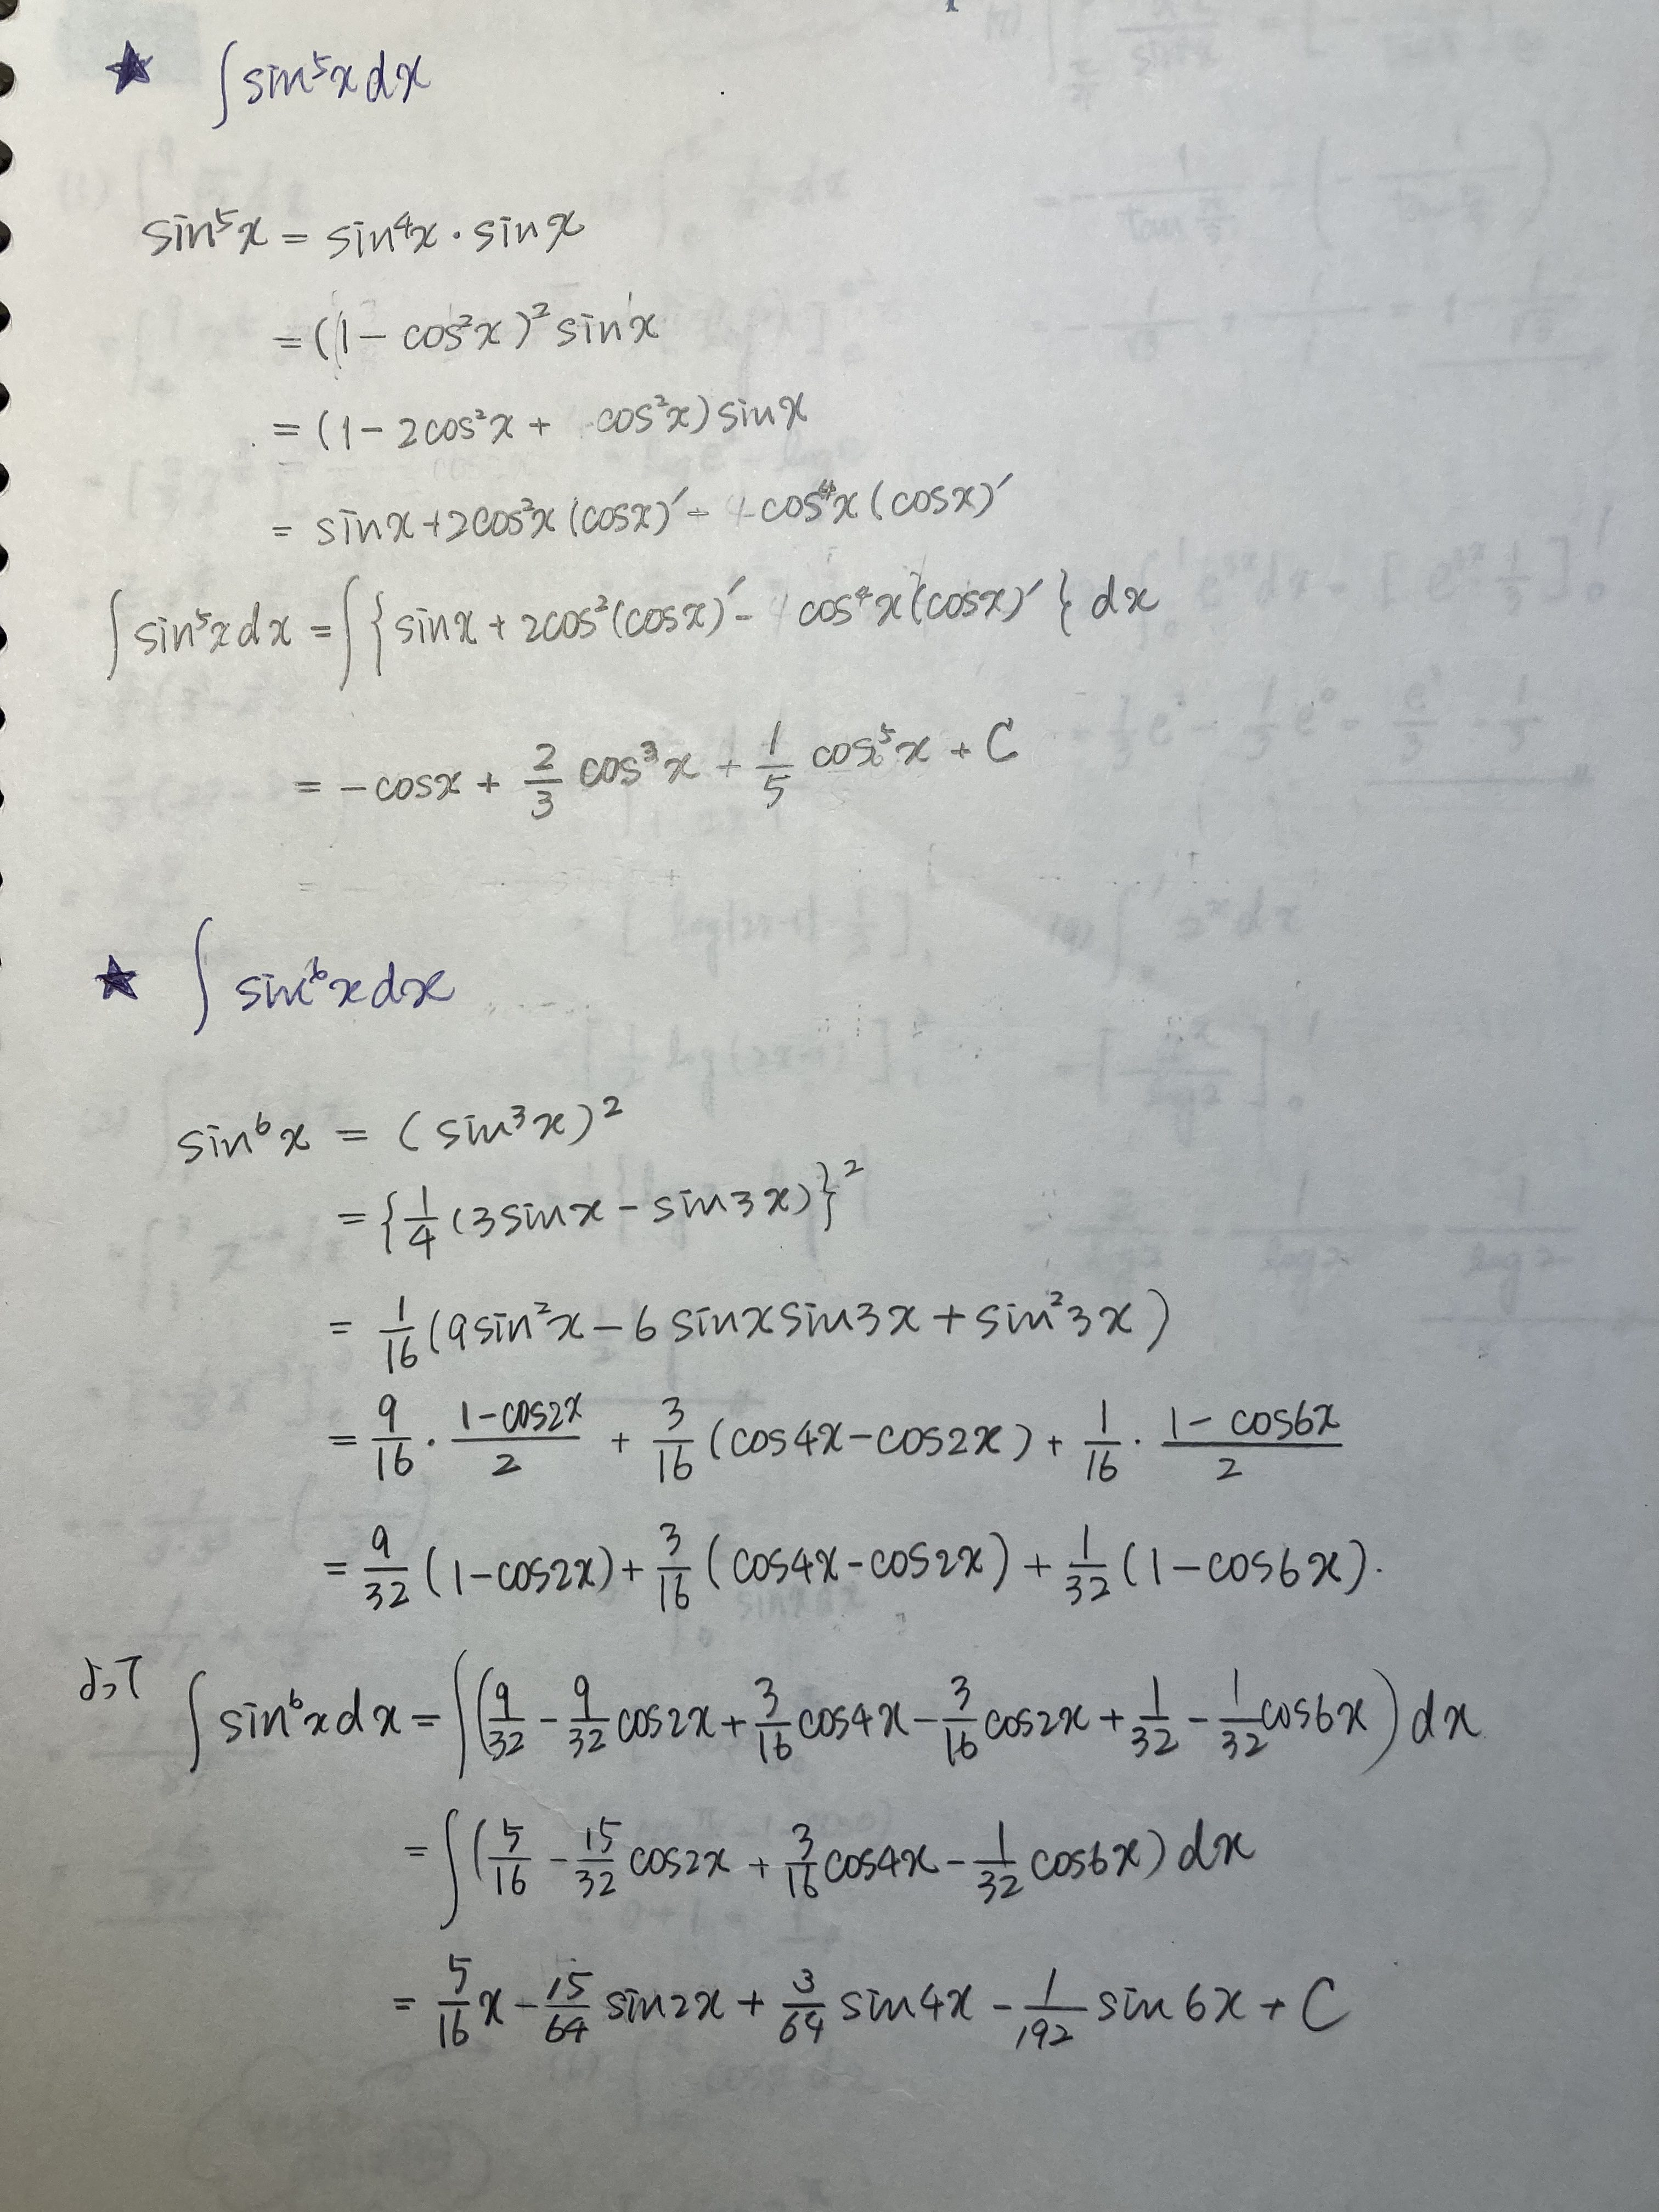 ★ ∫sin⁵x dx
sin⁵x = sin⁴x・sinx
= (1 − cos²x)² sinx
= (1 − 2cos²x + cos²x) sinx
= sinx + 2cos²x (cosx)′ − cos⁴x (cosx)′
∫sin⁵x dx = ∫{sinx + 2cos²(cosx)′ − cos⁴x (cosx)′} dx
= −cosx + 2/3 cos³x + 1/5 cos⁵x + C
★ ∫sin⁶x dx
sin⁶x = (sin³x)²
= {1/4 (3sinx − sin3x)}²
= 1/16 (9sin²x − 6sinx sin3x + sin²3x)
= 9/16・(1−cos2x)/2 + 3/16 (cos4x − cos2x) + 1/16・(1 − cos6x)/2
= 9/32 (1−cos2x) + 3/16 (cos4x − cos2x) + 1/32 (1 − cos6x).
よって ∫sin⁶x dx = ∫(9/32 − 9/32 cos2x + 3/16 cos4x − 3/16 cos2x + 1/32 − 1/32 cos6x) dx
= ∫(5/16 − 15/32 cos2x + 3/16 cos4x − 1/32 cos6x) dx
= 5/16 x − 15/64 sin2x + 3/64 sin4x − 1/192 sin6x + C